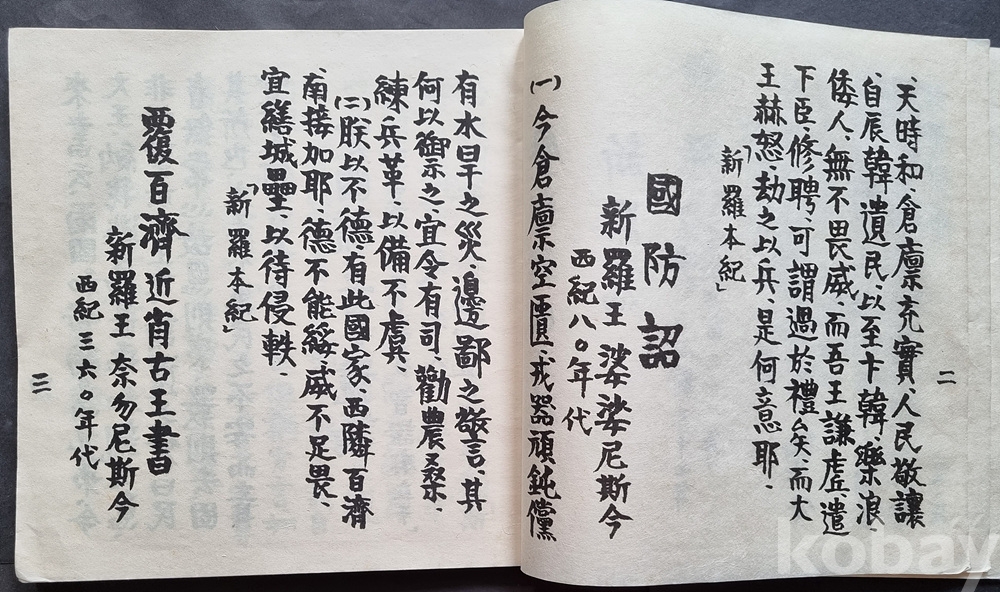 二
、天時和、倉廩充實、人民敬讓
、自辰韓遺民、以至卞韓、樂浪、
倭人、無不畏威、而吾王謙虛、遣
下臣、修聘、可謂過於禮矣、而大
王赫怒、劫之以兵、是何意耶、
「新羅本紀」
國防詔
新羅王 娑娑尼斯今
西紀八〇年代
(一)今倉廩空匱、戎器頑鈍、儻
有水旱之災、邊鄙之警、其
何以禦之、宜令有司、勸農桑、
練兵革、以備不虞、
(二)朕以不德有此國家、西隣百濟
、南接加耶、德不能綏、威不足畏、
宜繕城壘、以待侵軼、
「新羅本紀」
覆百濟近肖古王書
新羅王 奈勿尼斯今
西紀三六〇年代
三
kobay